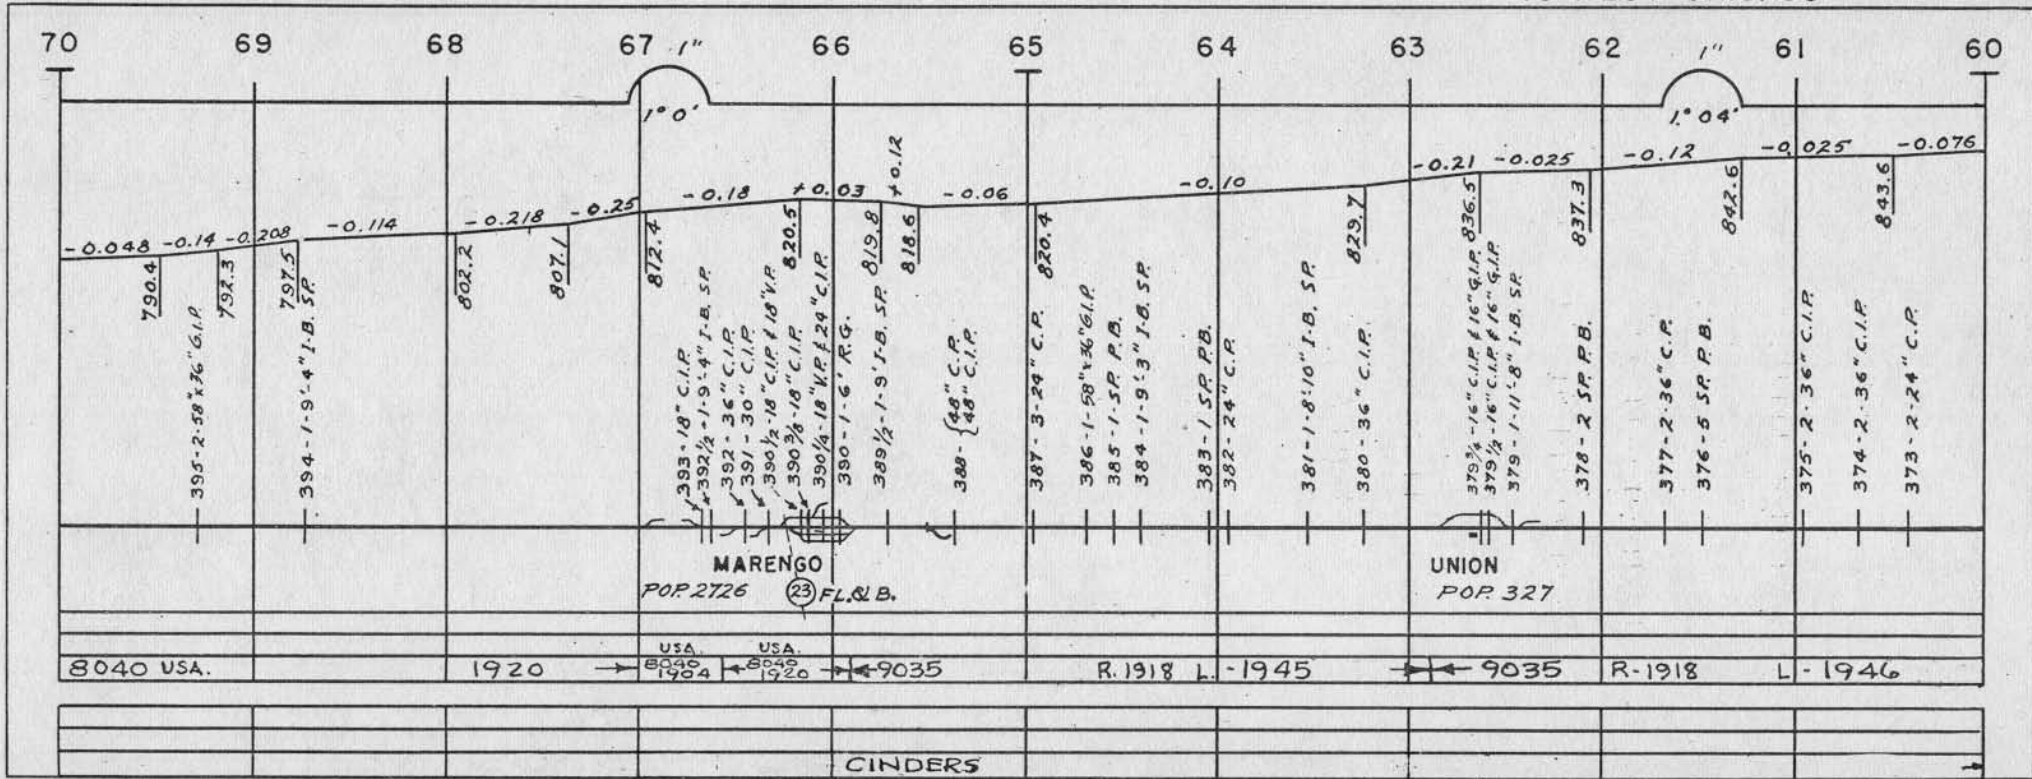 70 69 68 67 1" 66 65 64 63 62 1" 61 60
1° 0' 1° 04'
-0.048 -0.14 -0.208 -0.114 -0.218 -0.25 -0.18 +0.03 +0.12 -0.06 -0.10 -0.21 -0.025 -0.12 -0.025 -0.076
790.4 792.3 797.5 802.2 807.1 812.4 820.5 819.8 818.6 820.4 829.7 836.5 837.3 842.6 843.6
395-2-58"x36" G.I.P.
394-1-9'-4" I-B. SP.
393-18" C.I.P.
392½-1-9'-4" I-B. SP.
392-36" C.I.P.
391-30" C.I.P.
390½-18" C.I.P. & 18" V.P.
390⅜-18" C.I.P.
390¼-18" V.P. & 24" C.I.P.
390-1-6' R.G.
389½-1-9' I-B. SP.
388-{48" C.P.
{48" C.I.P.
387-3-24" C.P.
386-1-58"x36" G.I.P.
385-1-SP. P.B.
384-1-9'-3" I-B. SP.
383-1 SP. P.B.
382-24" C.P.
381-1-8'-10" I-B. SP.
380-36" C.I.P.
379¾-16" C.I.P. & 16" G.I.P.
379½-16" C.I.P. & 16" G.I.P.
379-1-11'-8" I-B. SP.
378-2 SP. P.B.
377-2-36" C.P.
376-5 SP. P.B.
375-2-36" C.I.P.
374-2-36" C.I.P.
373-2-24" C.P.
MARENGO UNION
POP. 2726 23 FL.&B. POP. 327
8040 USA. 1920 USA. 8040 1904 USA. 8040 1920 9035 R. 1918 L.-1945 9035 R-1918 L-1946
CINDERS